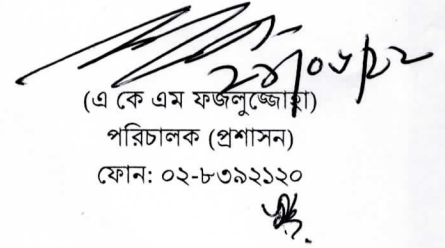 (এ কে এম ফজলুজ্জোহা)
পরিচালক (প্রশাসন)
ফোন: ০২-৮৩৯২১২০